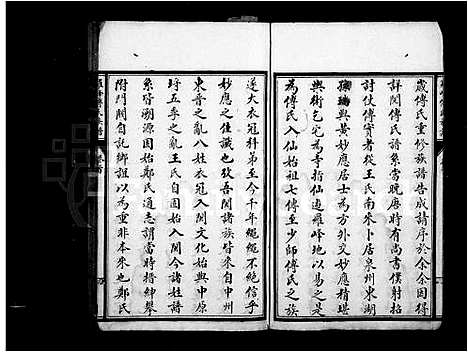 歲傅氏重修族譜告成請序於余余因得
詳閱傅氏譜系當晚唐時有尚書僕射招
討使傅實者從王氏南來卜居泉州東湖
與黃妙應居士為方外交妙應精堪
輿術乞寃為李指仙遊羅峰地以易之是
為傅氏入仙始祖七傳至少師傅氏之族
遂大衣冠科弟至今千年繩繩不絕信乎
妙應之佳讖也攷吾閩諸族皆來自中州
東晉之亂八姓衣冠入閩文化始與中原
埒五季之亂王氏自固始入閩今諸姓譜
系皆溯源固始鄭氏通志謂當時搢紳舉
附門閥自託鄉誼以為重非本來也鄭氏